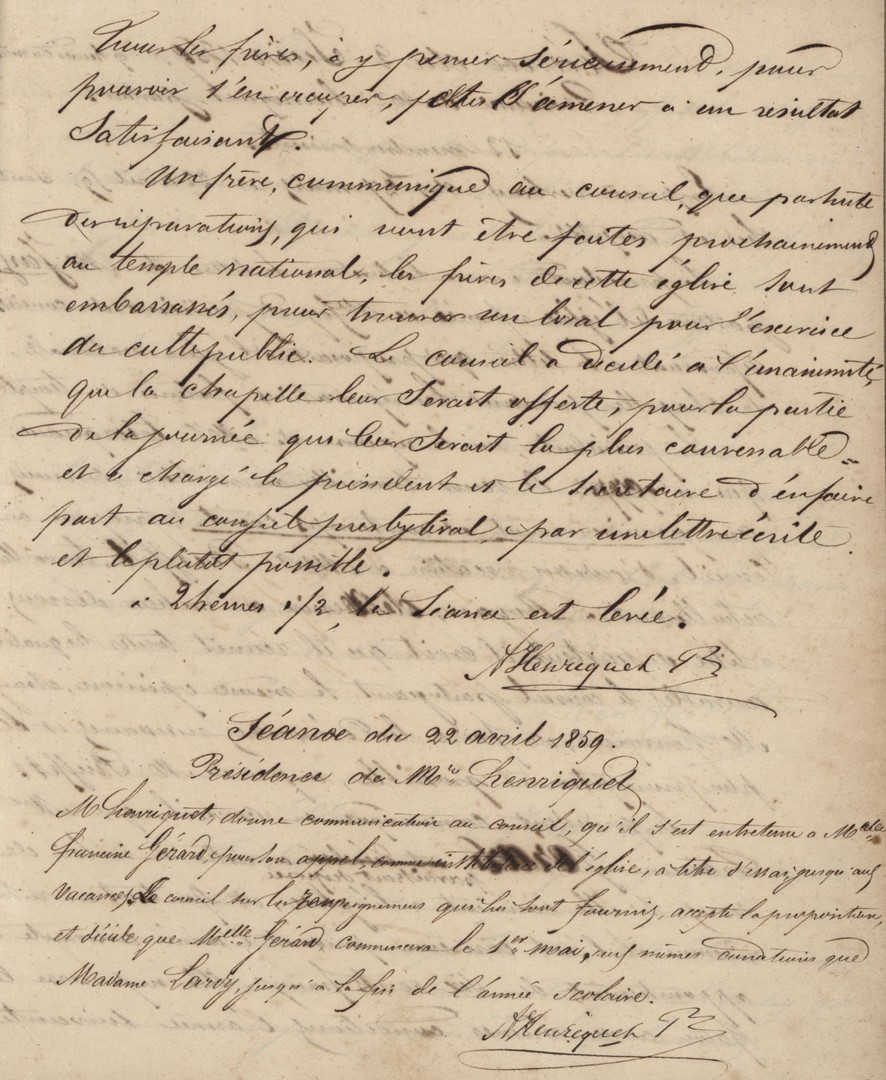 tous les frères, à y penser sérieusement, pour
pouvoir s'en occuper, et l'amener à un résultat
satisfaisant.
Un frère, communique au conseil, que par suite
des réparations, qui vont être faites prochainement
au temple national, les frères de cette église sont
embarrassés, pour trouver un local pour l'exercice
du culte public. Le conseil a décidé à l'unanimité,
que la chapelle leur serait offerte, pour la partie
de la journée qui leur serait la plus convenable
et a chargé le président et le secrétaire d'en faire
part au conseil presbytéral par une lettre écrite
et le plutôt possible.
à 2 heures 1/2, la séance est levée.
A Henriquet P.
Séance du 22 avril 1859.
Présidence de Mr. henriquet
M henriquet, donne communication au conseil, qu'il s'est entretenu a Melle
francine Gérard, pour son appel, comme institutrice de l'église, à titre d'essai jusqu'aux
vacances, Le conseil sur les renseignemens qui lui sont fournis, accepte la proposition,
et décide que Melle Gérard, commencera le 1er mai, aux mêmes conditions que
Madame Larvy, jusqu'à la fin de l'année scolaire.
A Henriquet P.